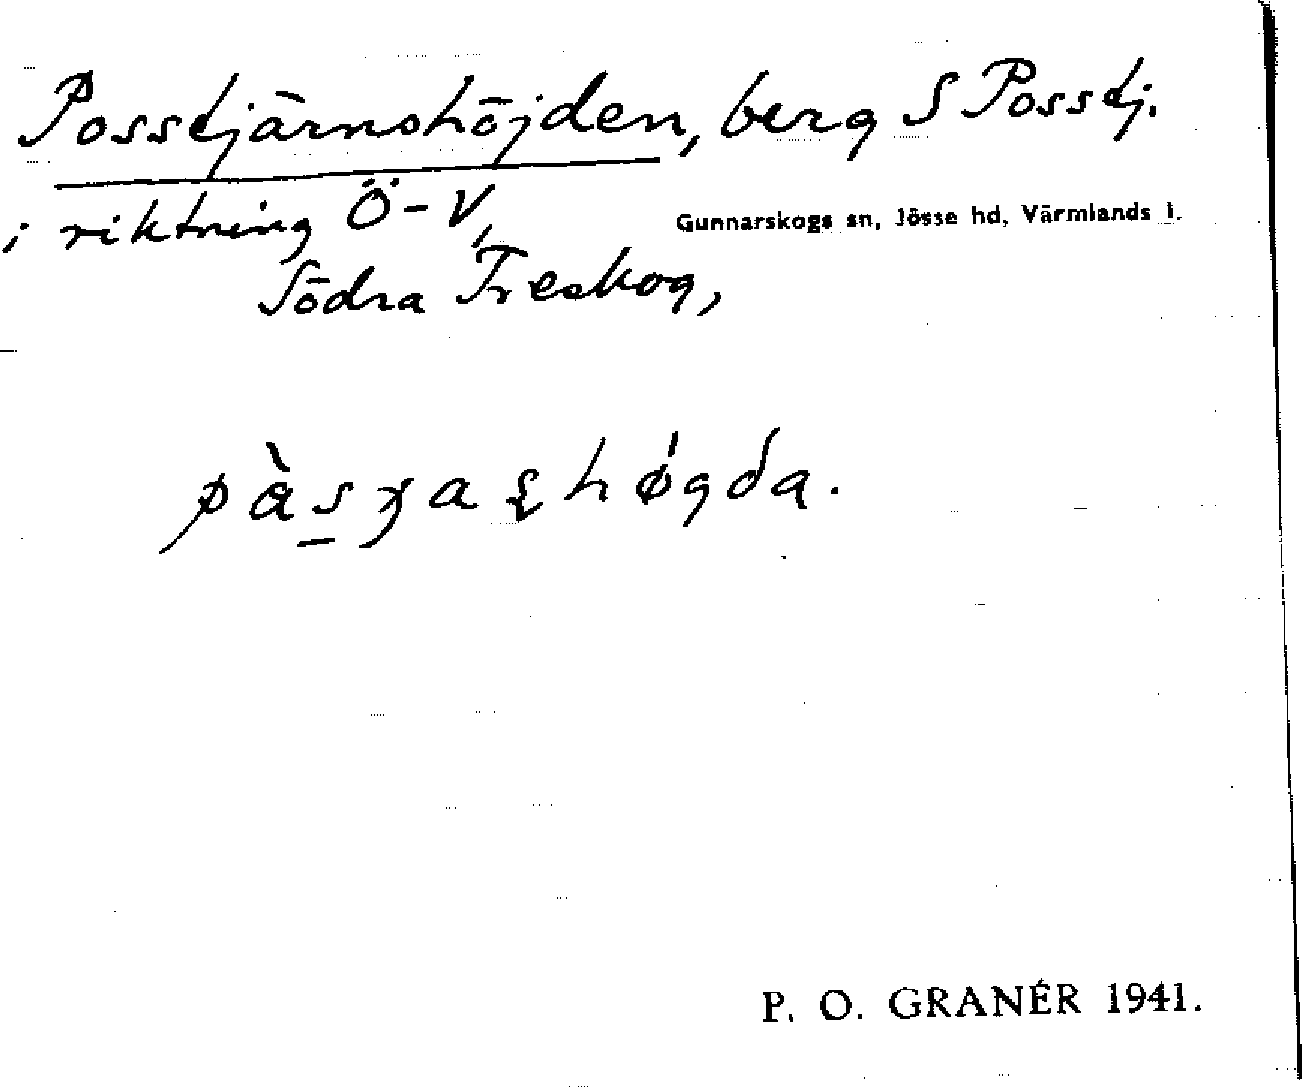 Posstjärnshöjden, berg S Posstj.
i riktning Ö-V,
Gunnarskogs sn, Jösse hd, Värmlands l.
Södra Treskog,
P. O. GRANÉR 1941.